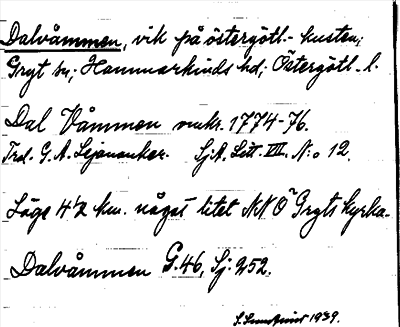 Dalvåmmen, vik på östergötl.-kusten;
Gryt sn; Hammarkinds hd; Östergötl. l.
Dal Våmmen omkr. 1774-76.
Trol. G. A. Lejonanker. SjA. Litt. VII. N:o 12.
Läge 4½ km. något litet NNÖ Gryts kyrka.
Dalvåmmen G.46, Sj. 252.
1939.